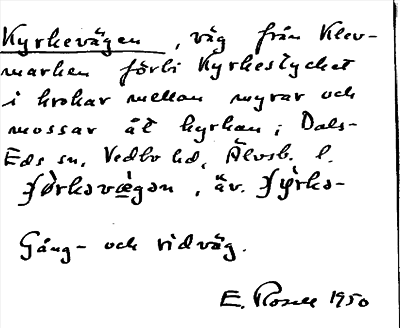 Kyrkevägen, väg från Klev-
marken förbi Kyrkestycket
i krokar mellan myrar och
mossar åt kyrkan i Dals-
Eds sn, Vedbo hd, Älvsb. l.
ʃørkəvægən, äv. ʃyrkə-
Gång- och ridväg.
E. Rosell 1950